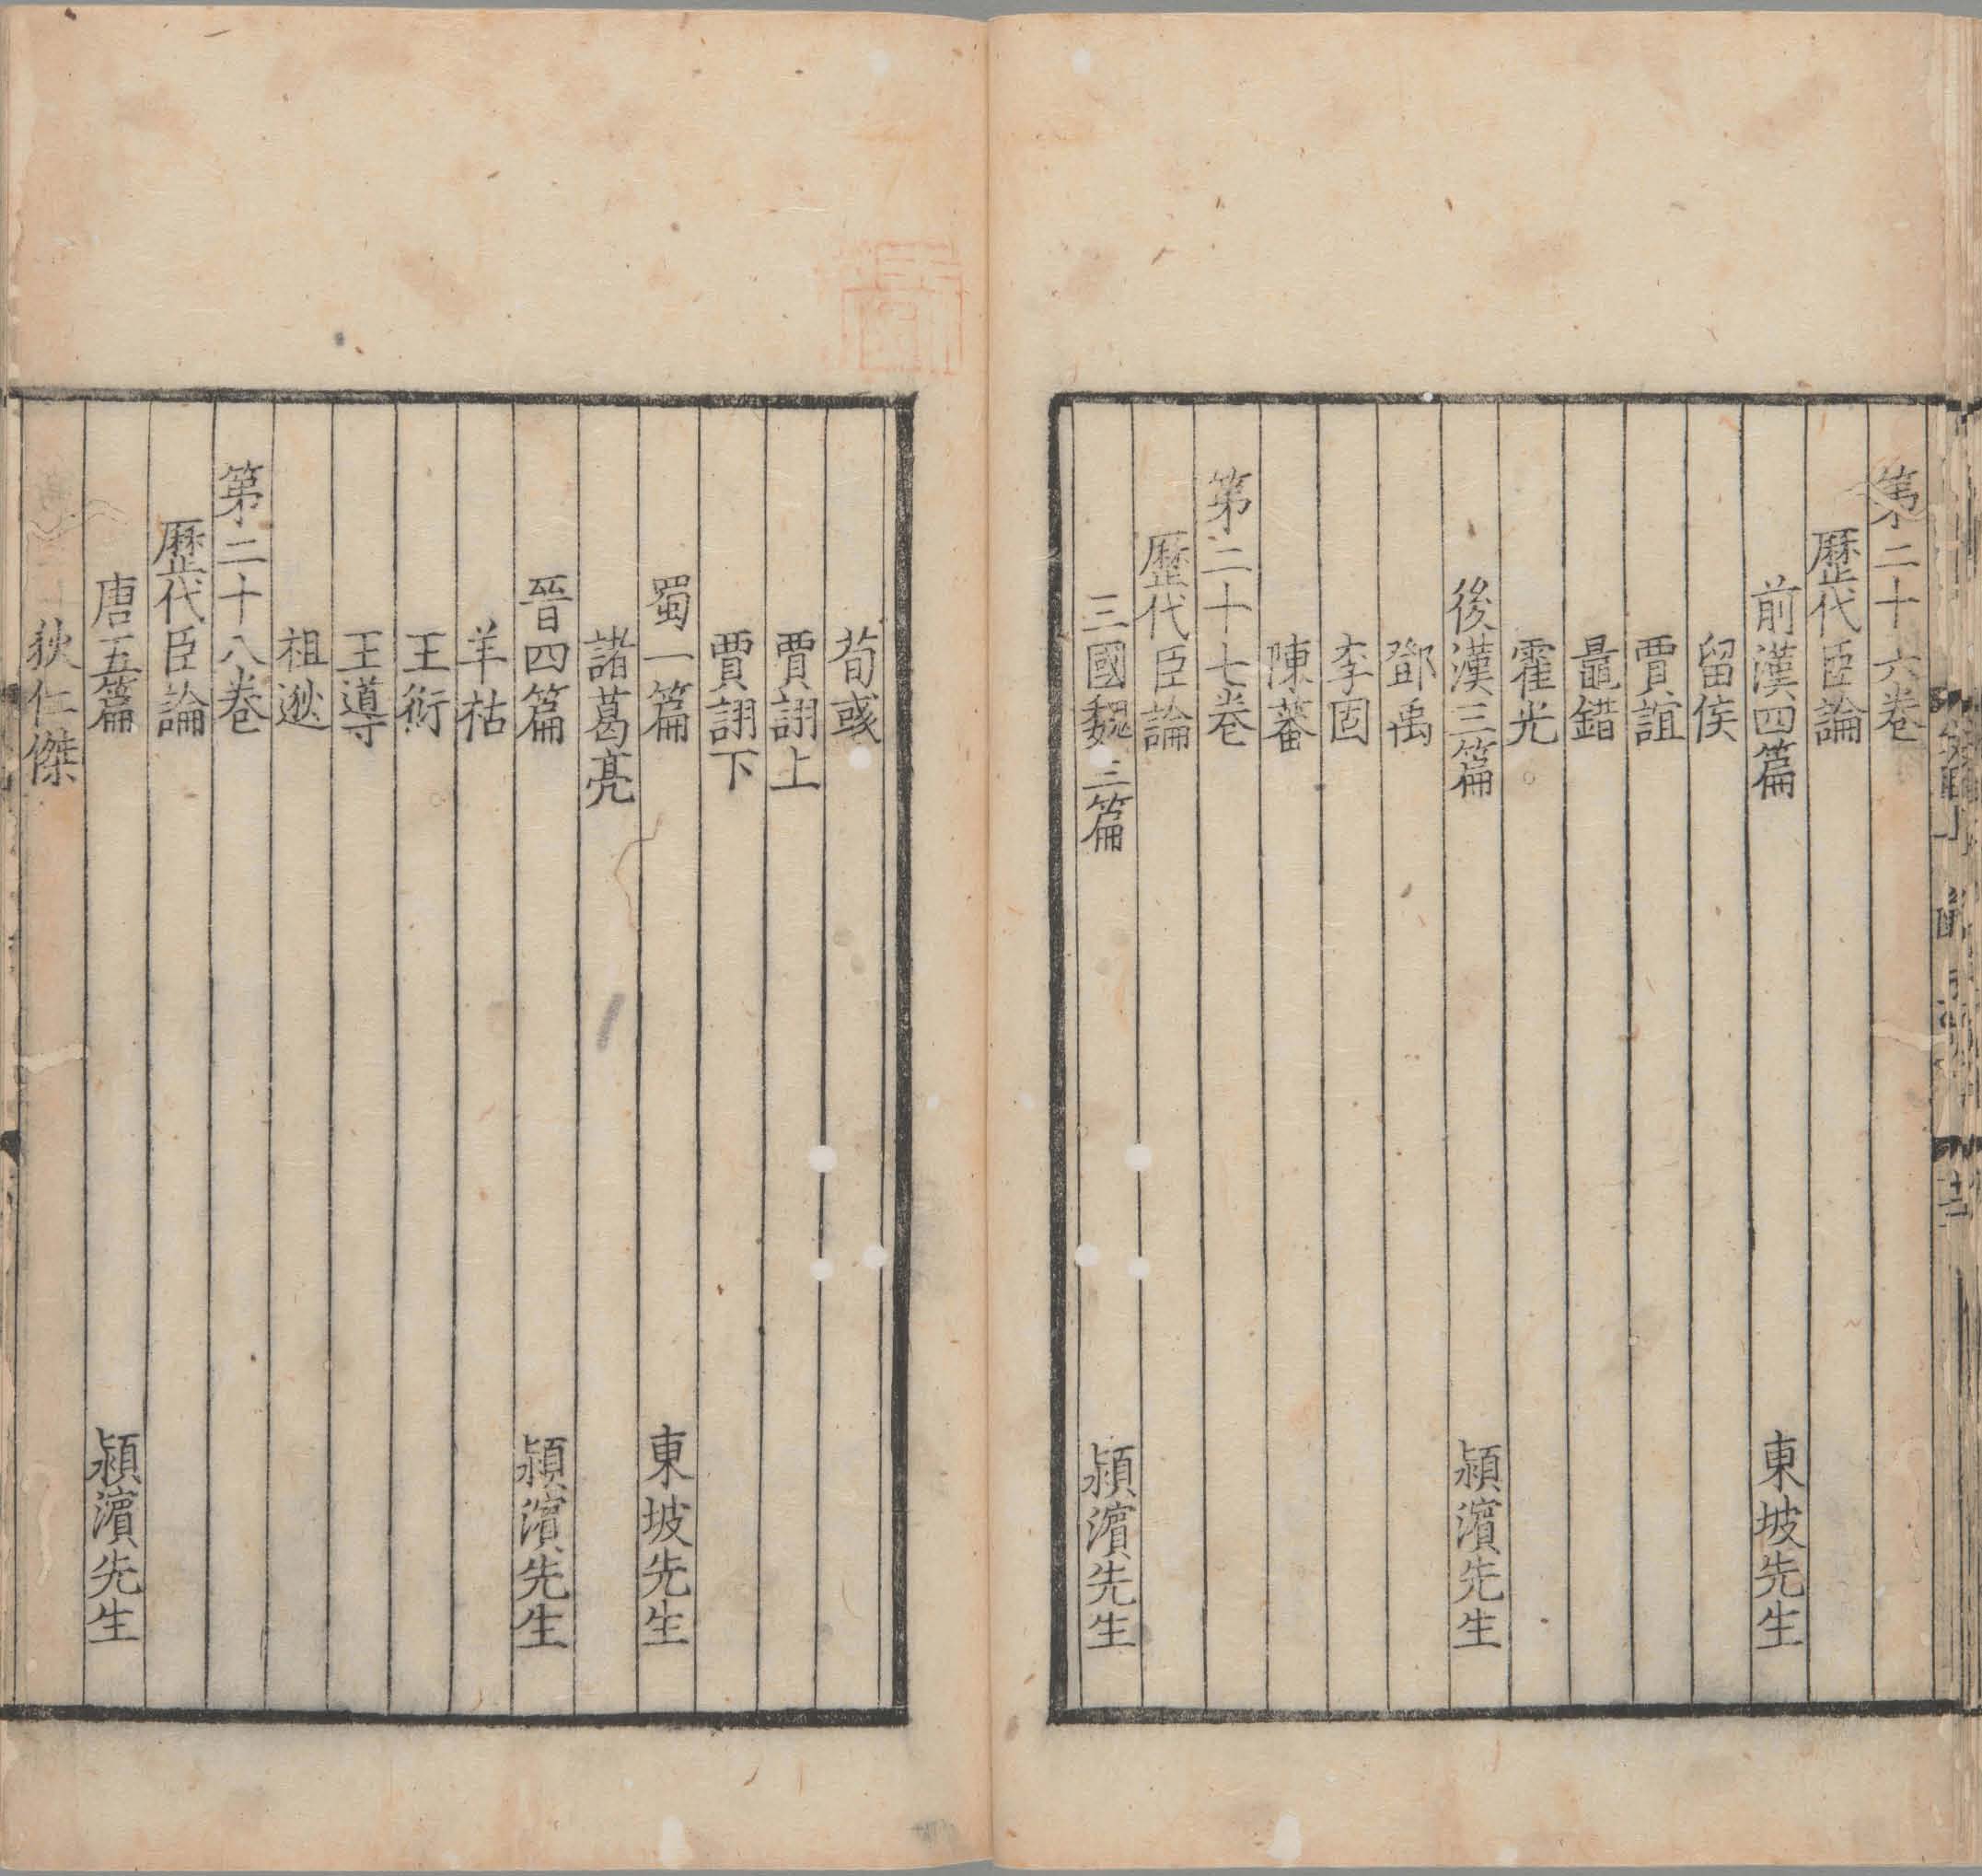 第二十六卷
歷代臣論
前漢四篇 東坡先生
留侯
賈誼
鼂錯
霍光
後漢三篇 潁濵先生
鄧禹
李固
陳蕃
第二十七卷
歷代臣論
三國魏三篇 潁濵先生
荀彧
賈詡上
賈詡下
蜀一篇 東坡先生
諸葛亮
晉四篇 潁濵先生
羊祜
王衍
王導
祖逖
第二十八卷
歷代臣論
唐五篇 潁濵先生
狄仁傑